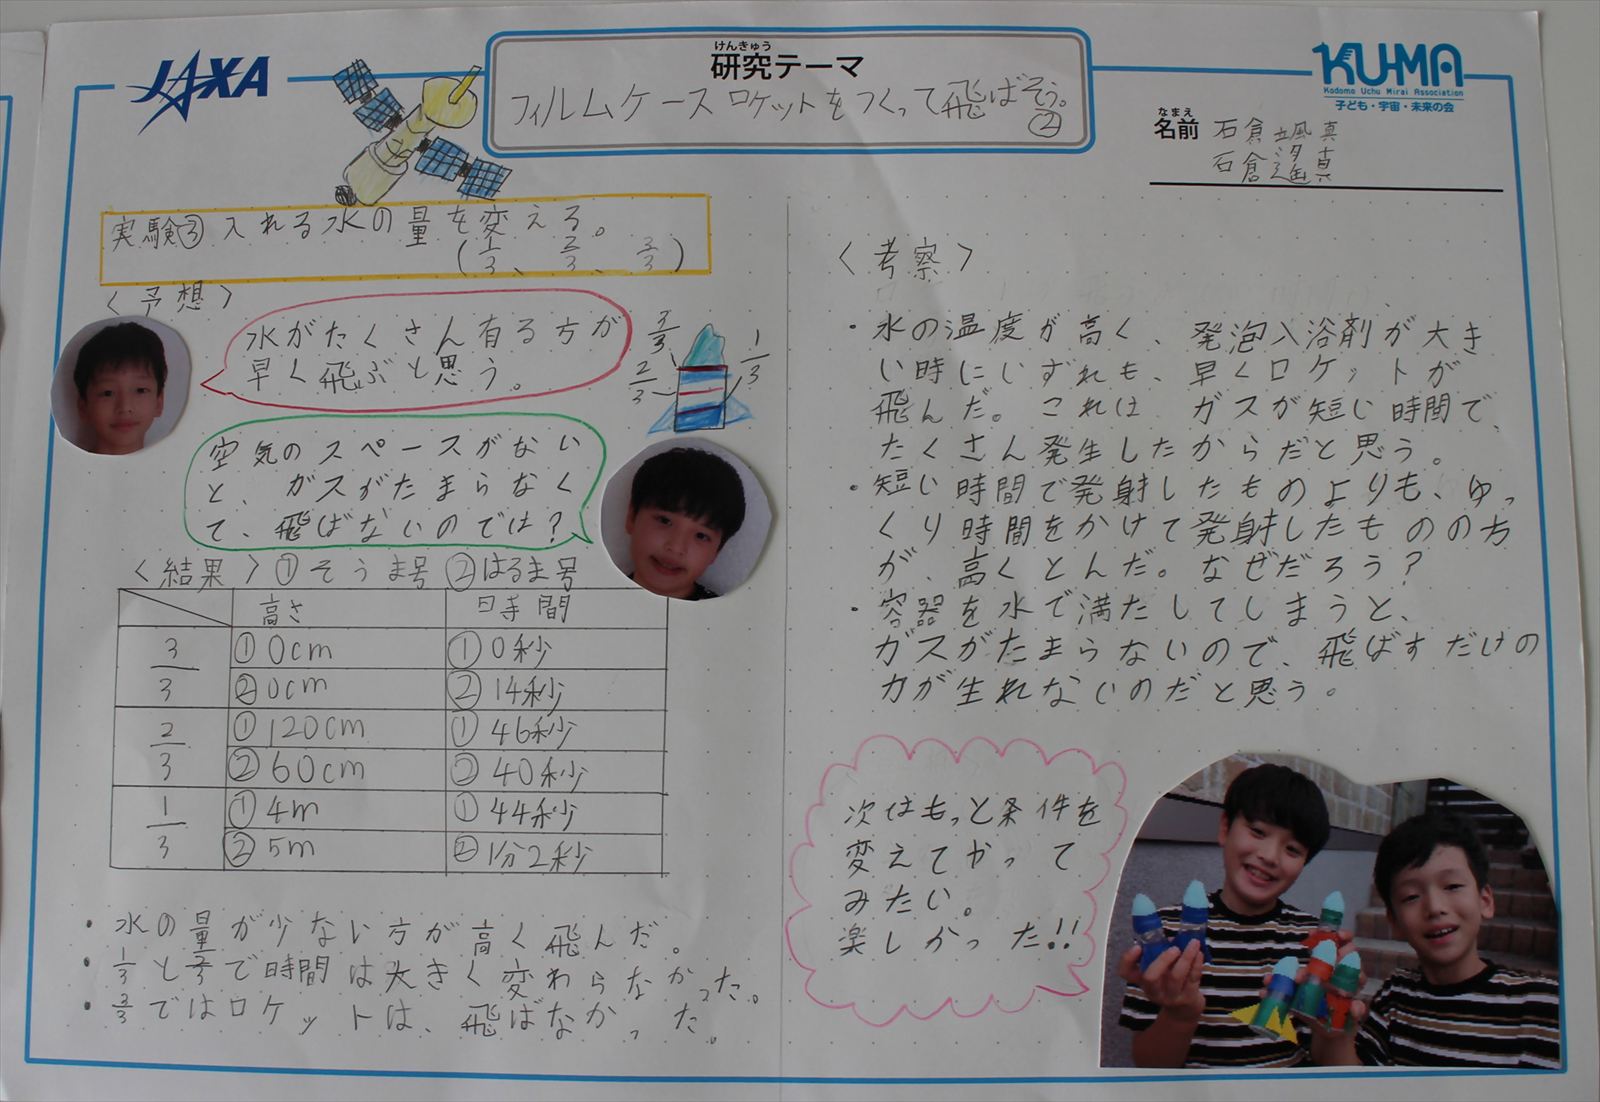 JAXA
けんきゅう
研究テーマ
フィルムケースロケットをつくって飛ばそう。
②
KU-MA
Kodomo Uchu Mirai Association
子ども・宇宙・未来の会
なまえ
名前 石倉颯真
石倉遥真
実験③入れる水の量を変える。
(1/3、2/3、3/3)
〈予想〉
水がたくさん有る方が
早く飛ぶと思う。
3/3
2/3
1/3
空気のスペースがない
と、ガスがたまらなく
て、飛ばないのでは?
〈結果〉①そうま号②はるま号
高さ 時間
3/3 ①0cm ①0秒
②0cm ②14秒
2/3 ①120cm ①46秒
②60cm ②40秒
1/3 ①4m ①44秒
②5m ②1分2秒
・水の量が少ない方が高く飛んだ。
・1/3と2/3で時間は大きく変わらなかった。
・3/3ではロケットは、飛ばなかった。
〈考察〉
・水の温度が高く、発泡入浴剤が大き
い時にいずれも、早くロケットが
飛んだ。これは、ガスが短い時間で、
たくさん発生したからだと思う。
・短い時間で発射したものよりも、ゆっ
くり時間をかけて発射したもののの方
が、高くとんだ。なぜだろう?
・容器を水で満たしてしまうと、
ガスがたまらないので、飛ばすだけの
力が生れないのだと思う。
次はもっと条件を
変えてやって
みたい。
楽しかった!!